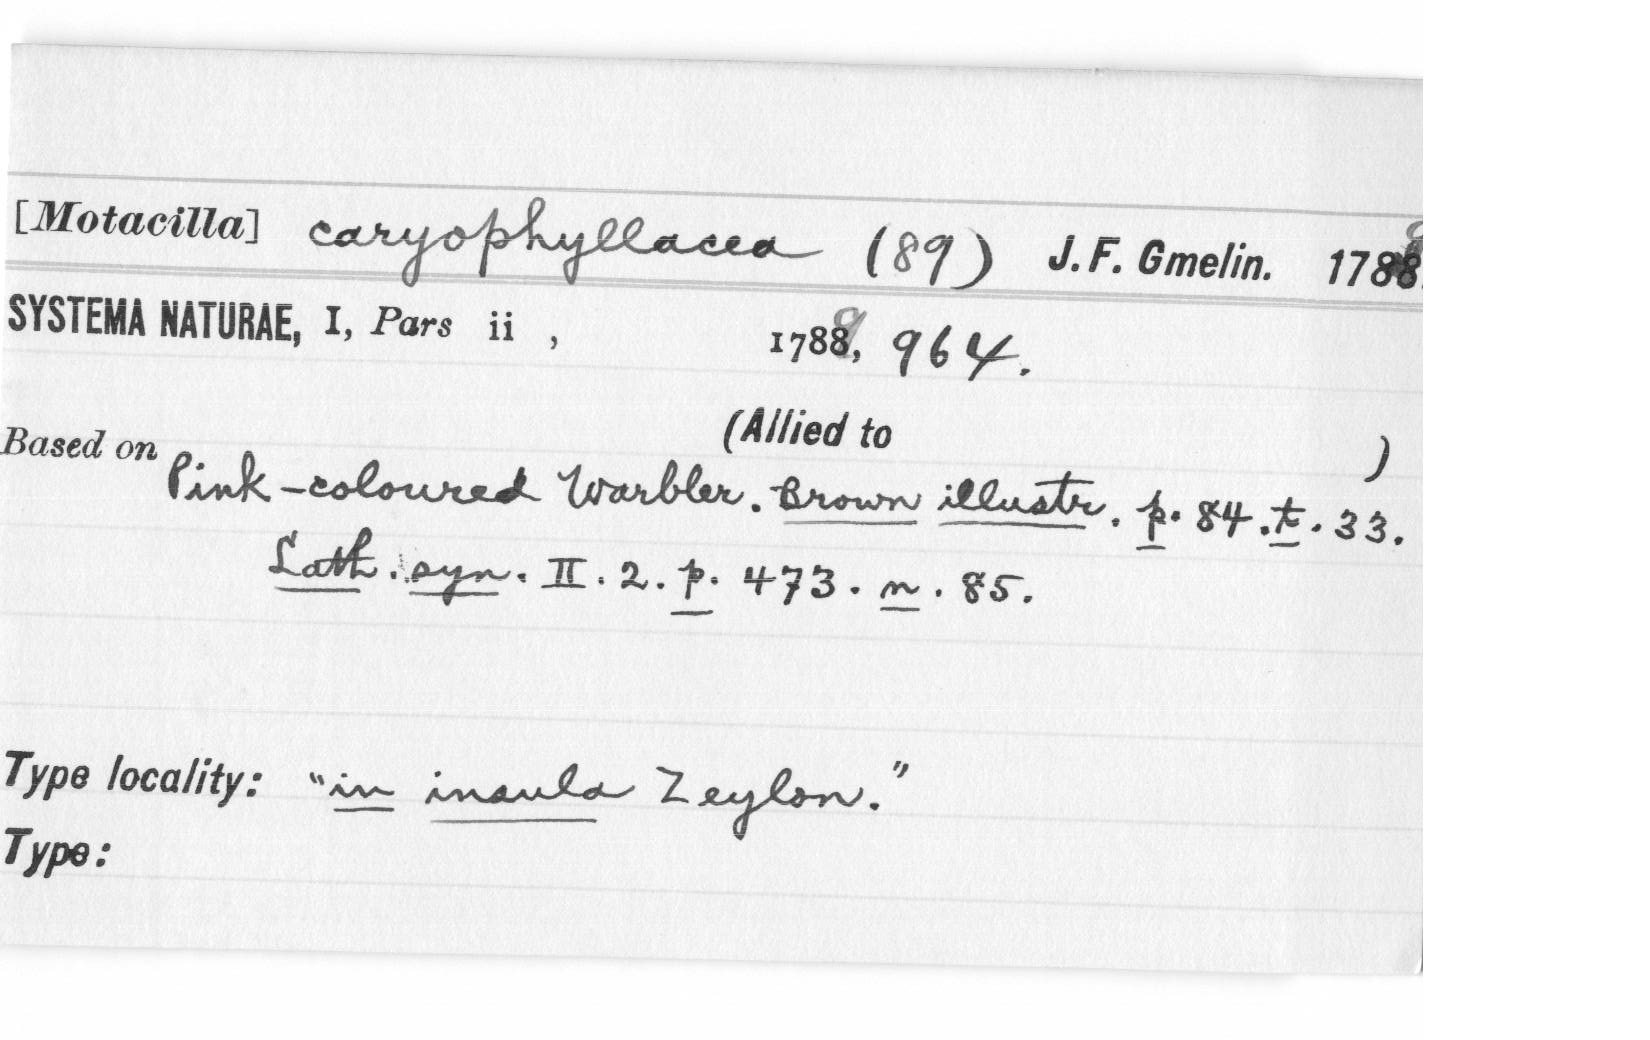 [Motacilla] caryophyllacea (89) J. F. Gmelin. 1789
SYSTEMA NATURAE, I, Pars ii , 1789, 964.
(Allied to )
Based on Pink-coloured Warbler. Brown illustr. p. 84. t. 33.
Lath. syn. II. 2. p. 473. n. 85.
Type locality: "in insula Zeylon."
Type: